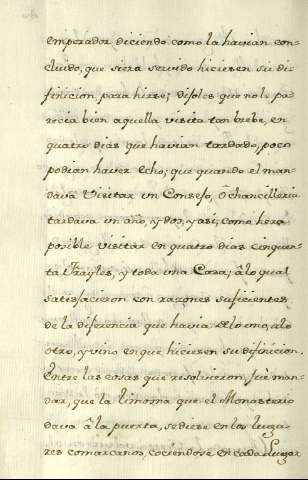 emperador diciendo como la havian con-
cluido, que siera servido hiciesen su di-
finicion para hirse; dijoles que no le pa-
recia bien aquella visita tan brebe, en
quatro dias que havian tardado, poco
podian haver echo; que quando el man-
dava Visitar un Consejo, ô chancilleria
tardava un año, y dos, y asi; como hera
posible visitar en quatro dias cinquen-
ta Frayles, y toda una Casa; â lo qual
satisfacieron con razones suficientes
de la diferencia que havia delo uno, alo
otro, y vino en que hiciesen su difinicion.
Entre las cosas que resolvieron, fuè man-
dar, que la limosna que el Monasterio
dava â la puerta, se diese en los luga-
res comarcanos, cociendose en cada lugar